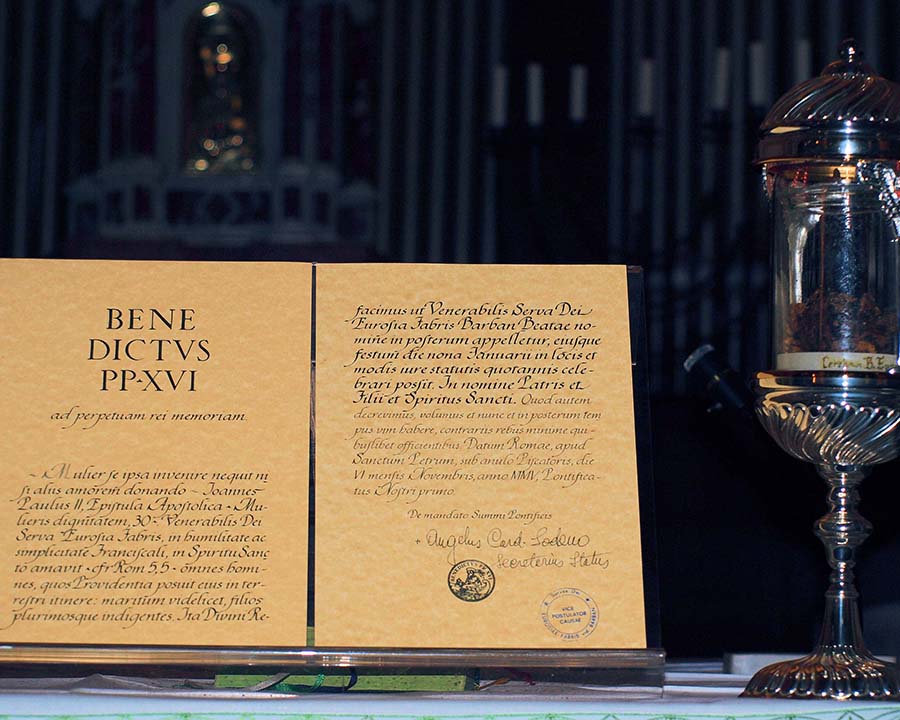 BENE
DICTVS
PP·XVI
ad perpetuam rei memoriam.
~ Mulier se ipsa invenire nequit ni
si aliis amorem donando ~ Ioannes
Paulus II, Epistula Apostolica ~ Mu-
lieris dignitatem, 30 ~ Venerabilis Dei
Serva Eurosia Fabris, in humilitate ac
simplicitate Franciscali, in Spiritu Sanc
to amavit ~ cfr Rom 5,5 ~ omnes homi-
nes, quos Providentia posuit eius in ter-
restri itinere: maritum videlicet, filios
plurimosque indigentes. Ita Divini Re-
facimus ut Venerabilis Serva Dei
Eurosia Fabris Barban Beatae no-
mine in posterum appelletur, eiusque
festum die nona Ianuarii in locis et
modis iure statutis quotannis cele-
brari possit. In nomine Patris et
Filii et Spiritus Sancti. Quod autem
decrevimus, volumus et nunc et in posterum tem
pus vim habere, contrariis rebus minime qui-
buslibet officientibus. Datum Romae, apud
Sanctum Petrum, sub anulo Piscatoris, die
VI mensis Novembris, anno MMV, Pontifica-
tus Nostri primo.
De mandato Summi Pontificis
+ Angelus Card. Sodano
Secretarius Status
VICE
POSTULATOR
CAUSAE